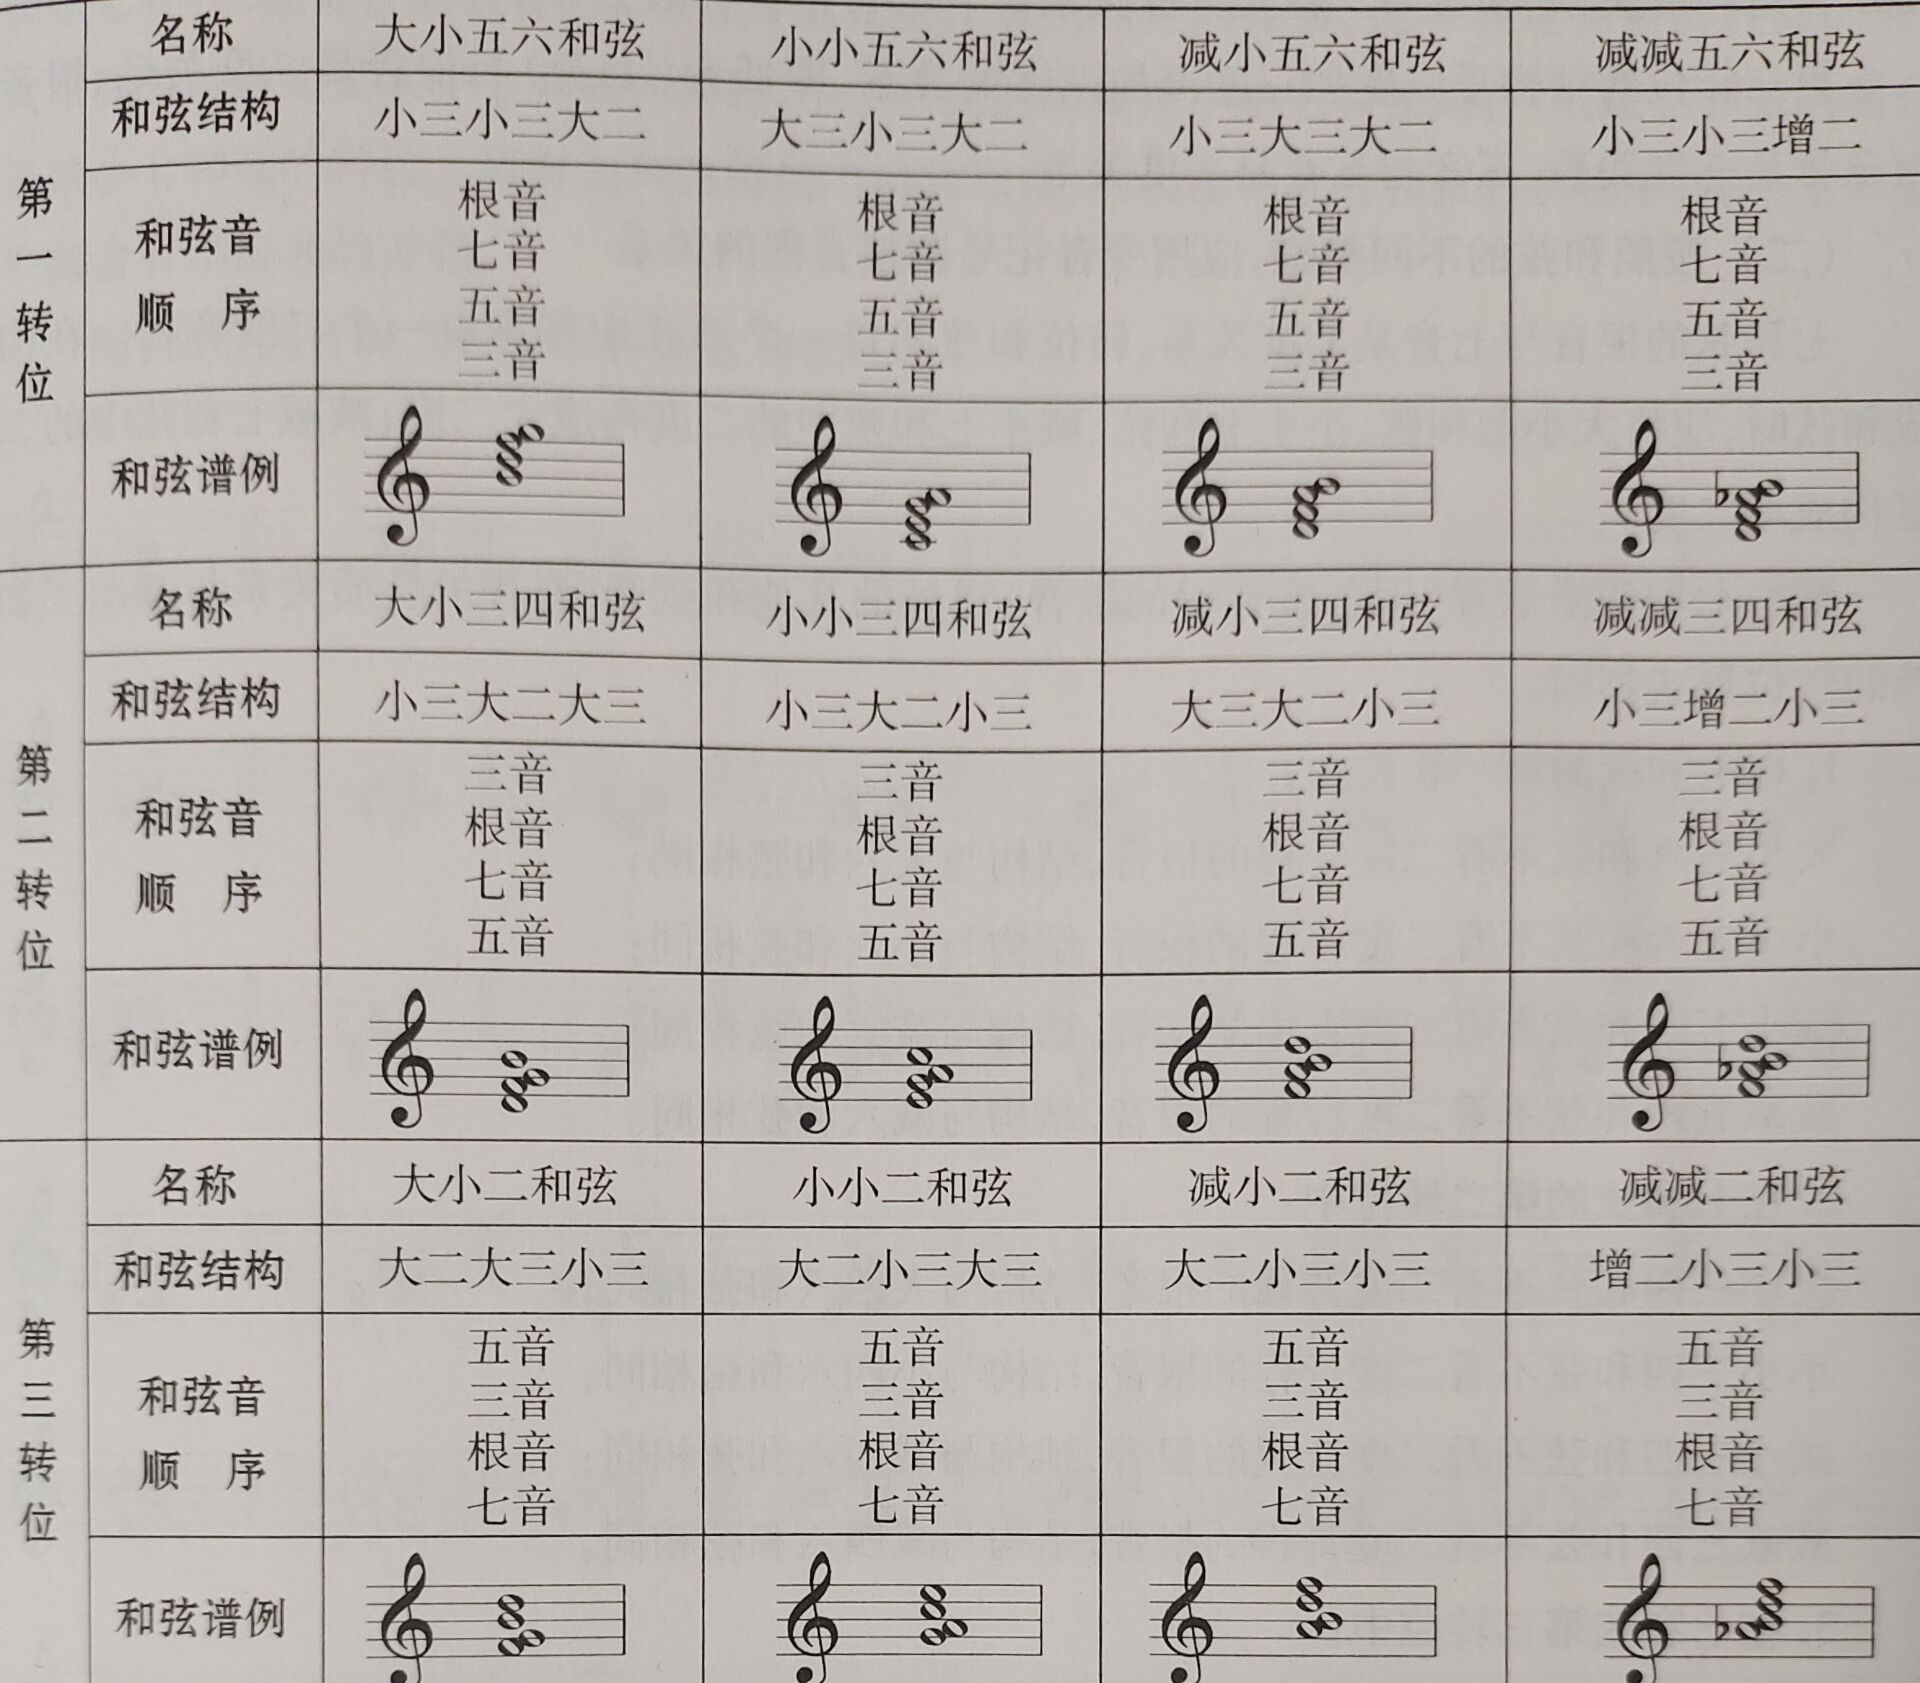 名称 大小五六和弦 小小五六和弦 减小五六和弦 减减五六和弦
和弦结构 小三小三大二 大三小三大二 小三大三大二 小三小三增二
第一转位
和弦音 根音 根音 根音 根音
七音 七音 七音 七音
顺 序 五音 五音 五音 五音
三音 三音 三音 三音
和弦谱例
名称 大小三四和弦 小小三四和弦 减小三四和弦 减减三四和弦
和弦结构 小三大二大三 小三大二小三 大三大二小三 小三增二小三
第二转位
三音 三音 三音 三音
和弦音 根音 根音 根音 根音
顺 序 七音 七音 七音 七音
五音 五音 五音 五音
和弦谱例
名称 大小二和弦 小小二和弦 减小二和弦 减减二和弦
和弦结构 大二大三小三 大二小三大三 大二小三小三 增二小三小三
第三转位
五音 五音 五音 五音
和弦音 三音 三音 三音 三音
顺 序 根音 根音 根音 根音
七音 七音 七音 七音
和弦谱例